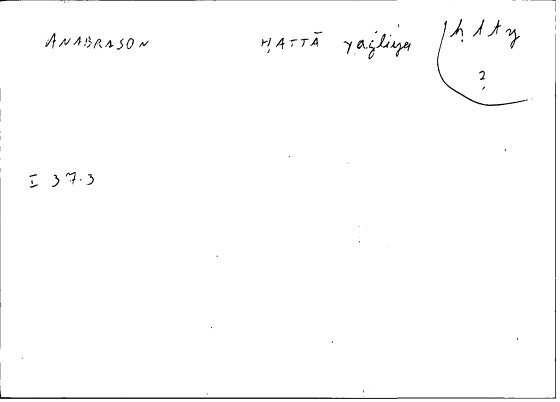 ANABRASON ḤATTĀ yaġliya ḥtty
?
I 37.3